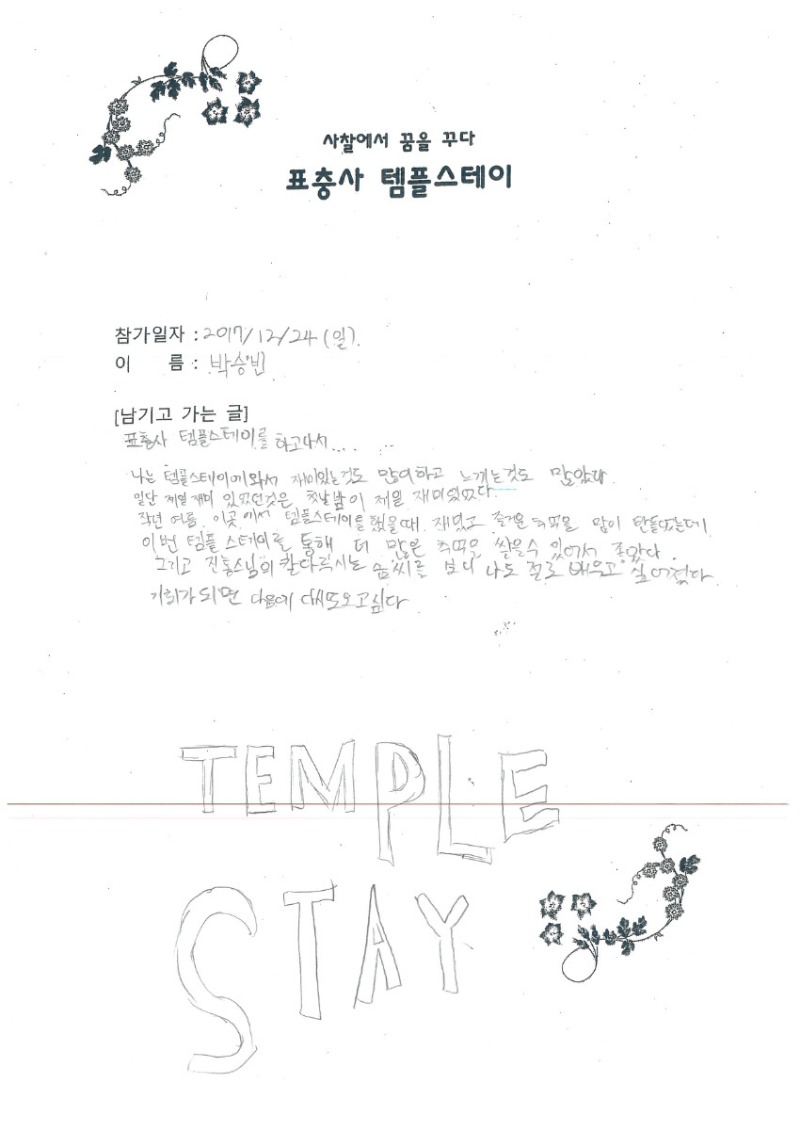 사찰에서 꿈을 꾸다
표충사 템플스테이
참가일자 : 2017/12/24 (일)
이 름 : 박승빈
[남기고 가는 글]
표충사 템플스테이를 하고나서......
나는 템플스테이에와서 재미있는것도 많이하고 느끼는것도 많았다
일단 제일 재미 있었던것은 첫날밤이 제일 재미있었다
작년 여름 이곳에서 템플스테이를 했을때 재밌고 즐거운 추억을 많이 만들었는데
이번 템플 스테이를 통해 더 많은 추억을 쌓을수 있어서 좋았다.
그리고 진통스님의 활다루시는 솜씨를 보니 나도 절로 배우고 싶어졌다
기회가되면 다음에 다시또오고싶다
TEMPLE
STAY